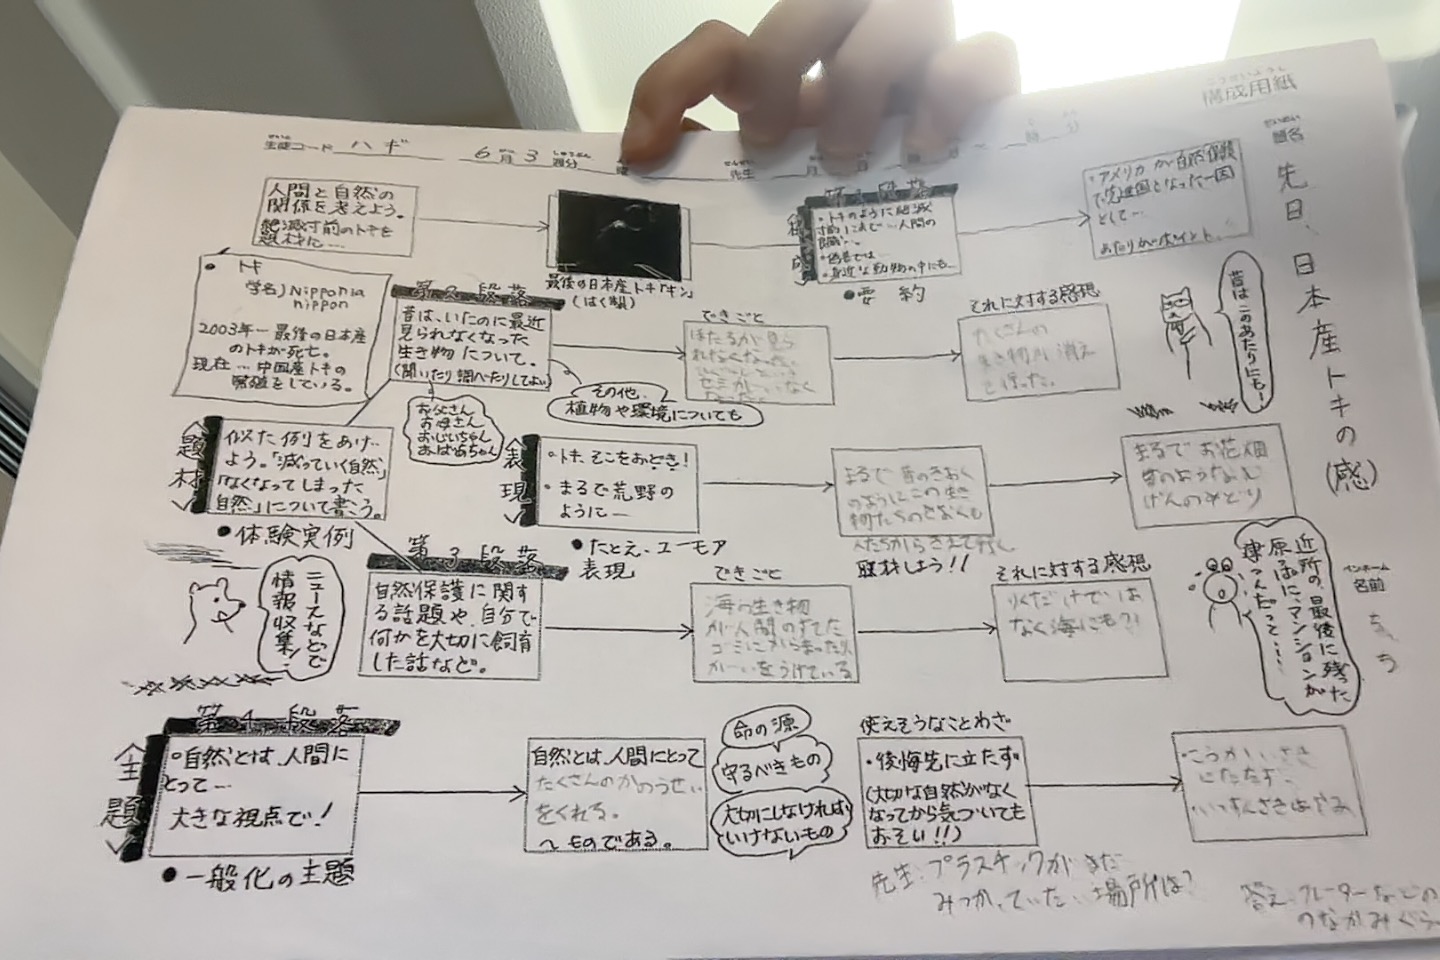 構成用紙
生徒コード ハギ 6月3週分
先生 月
題名 先日、日本産トキの(感)
ペンネーム
名前 ちっち
人間と自然の
関係を考えよう。
絶滅寸前のトキを
題材に…
最後の日本産トキ「キン」
(はく製)
第1段落
構成
・トキのように絶滅
・身近な動物の中にも…
●要約
・アメリカが自然保護
で先進国となった一因
として…
あたりがポイント。
・トキ
学名)Nipponia
nippon
2003年ー最後の日本産
のトキが死亡。
現在…中国産トキの
繁殖をしている。
第2段落
昔は、いたのに最近
見られなくなった
生き物について。
(聞いたり調べたりしてよい)
お父さん
お母さん
おじいちゃん
おばあちゃん
その他、
植物や環境についても
できごと
ほたるが見ら
れなくなった。
セミがーいなく
それに対する感想
たくさんの
生き物が消え
てしまった。
昔はこのあたりにも…
<題材>
似た例をあげ
よう。「減っていく自然」
「なくなってしまった
自然」について書こう。
●体験実例
<表現>
・トキ、そこをおどき!
・まるで荒野の
ように…
●たとえ、ユーモア
表現
まるで昔のきおく
のようにこの生き
物たちのきおくも
人たちからきえて行く
取材しよう!!
まるでお花畑
第3段落
自然保護に関す
る話題や、自分で
何かを大切に飼育
した話など。
ニュースなどで
情報収集!
できごと
海の生き物
が人間のすてた
ゴミにからまったり
がいをうけている
それに対する感想
りくだけでは
なく海にも?!
近所の、最後に残った
原っぱに、マンションが
建つんだって……
第4段落
<主題>
・自然とは、人間に
とって…
大きな視点で!
●一般化の主題
自然とは、人間にとって
たくさんのかのうせい
をくれる。
～ものである。
命の源
守るべきもの
大切にしなければ
いけないもの
使えそうなことわざ
・後悔先に立たず
(大切な自然がなく
なってから気づいても
おそい!!)
・こうかいさき
にたたず。
・いっすんさきはやみ
先生:プラスチックがまだ
みつかっていない場所は?
答え:クレーターなどの